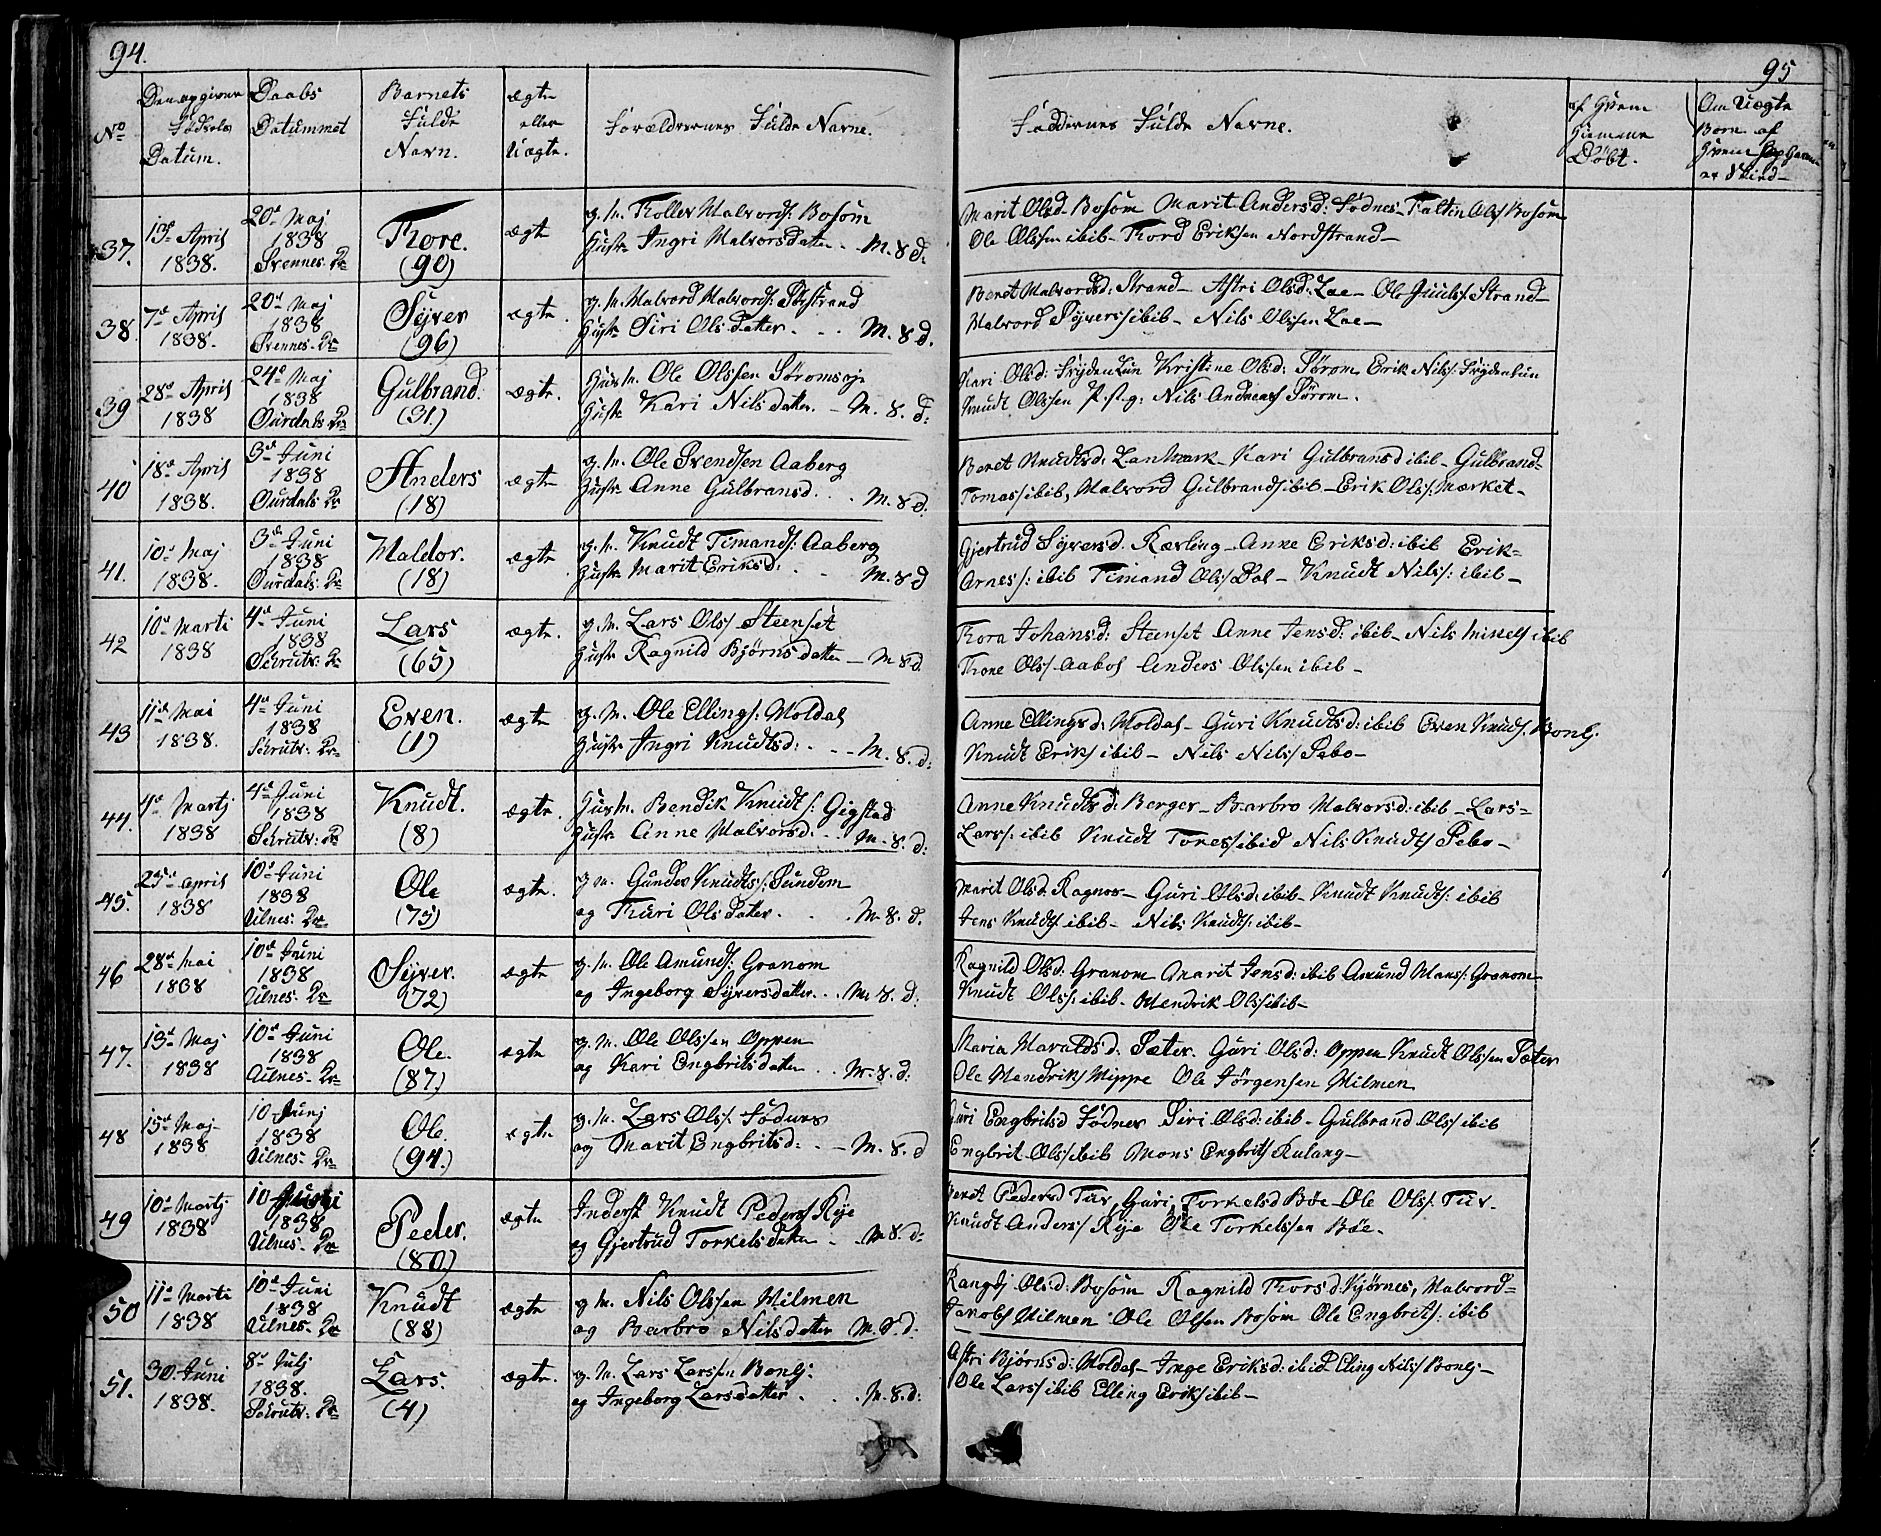 94.
No
Den opgivne Fødsels Datum.
Daabs Datummet
Barnets Fulde Navn.
ægte eller Uægte.
Forældrernes Fulde Navne.
37. 13d April 1838. 20d Maj 1838 Svennes. K Thore. (90) ægte g. m. Halvords: Bosom
Hustr Ingri Halvorsdatter. - M. 8 d:
38 7d April 1838. 20d Maj 1838 Svennes. K Syver (96) ægte. g. m. Halvord Halvords: Strand
Hustr Siri Olsdatter. . . M. 8 d.
39 28d April 1838 24d Maj 1838 Ourdals K Gulbrand. (31.) ægte. Husm. Ole Olssen
Hustr Kari Nilsdatter. - M. 8. d:
40 18d April 1838. 3d Juni 1838 Ourdals K Anders (18) ægte g. m. Ole Svendsen Aaberg
Hustr Anne Gulbransd. . . M. 8 d.
41. 10d Maj 1838. 3d Juni 1838 Ourdals: K Haldor. (18) ægte g. m. Knudt Timands: Aaberg
Hustr Marit Eriksd: . - M. 8 d
42 10d Marti 1838 4d Juni 1838 K Lars (65) ægte. g. M. Lars Ols/ Steenset
Hustr Ragnild Bjørnsdatter - M 8 d
43 11d Mai 1838. 4d Juni 1838 K Even. (1) ægte g. M. Ole Ellings: Moldal
Hustr Ingri Knudtsd: . - - M. 8. d:
44. Martj 1838 4d Juni 1838 K Knudt. (8) ægte. Husm. Bendik Knudts: Gigstad
Hustr Anne Halvorsd: . . M. 8. d:
45. 25d April 1838 10d Juni 1838 Ulnes. K Ole (75) ægte. g. m. Knudts: Sundem
og Thuri Olsdater. . . M. 8. d.
46 28d Mai 1838 10d Juni 1838 Ulnes. K Syver. (72) ægte g. m. Ole Amunds: Granom
og Ingeborg Syversdatter. . M. 8. d:
47. 13d Maj 1838 10d Juni 1838 Ulnes. K Ole. (87.) ægte g. M. Ole Olssen Oppen
og Kari Engbritsdatter . . M. 8. d:
48 15d Maj 1838 10 Junj 1838 Ulnes. K Ole. (94.) ægte. g. m. Lars Ols/. Fødnes
og Marit Engbritsd: . - M. 8. d
49 10d Martj 1838 10 Juni 1838 Ulnes. K Peder. (80.) ægte Inderst Knudt Peders/ Rye
og Gjertrud Torkelsdatter . . M 8. d:
50 11d Marti 1838 10d Juni 1838 Ulnes. K Knudt (88) ægte g M. Nils Olssen Hilmen
og Barbro Nilsdatter M. 8. d:
51. 30. Juni 1838. 8d Julj 1838. K Lars. (4) ægte. g. M. Lars Larssen Bonlj.
og Ingeborg Larsdatter. . . M. 8. d:
95
Faddernes Fulde Navne.
af Hvem Hiemme Døbt.
Om Uægte Born af Hvem
Marit Olsd. Bosom Marit Andersd: Fødnes - Faltin Ols/ Bosom
Ole Olssen ibib - Thord Eriksen Nordstrand -
Beret Halvordsd: Strand - Astri Olsd: Loe - Ole Juuls/ Strand -
Halvord Syvers/ ibib - Nils Olssen Loe -
Kari Olsd: Frydenlun Kristine Olsd: Sørom Erik Nils/ Frydenlun
Knudt Olssen P. s. g: Nils Andreas/ Sørom.
Beret Knudtsd: Kari Gulbransd ibib - Gulbrand=
Tomas/ ibib, Halvord Gulbrands/ ibib - Erik Ols/: Mørket -
Gjertrud Syversd. Rævling - Anne Eriksd: ibib Erik=
Arnes/: ibib Timand Ols/ Dal - Knudt Nils/: ibib -
Thora Johansd: Steenset Anne Jensd: ibib - Nils ibib
Thore Ols/ Aabol Anders Olssen ibib -
Anne Ellingsd: Moldal - Guri Knudtsd: ibib Even Knuds/. Bonlj.
Knudt Eriks/ ibib - Nils Nils/ Sebo -
Anne Knudtsd: Berger - Barbro Halvorsd: ibib - Lars=
Lars/: ibib Knudt Tores/ ibid Nils Knudts/ Sebo -
Marit Olsd: Ragnos - Guri Olsd: ibib - Knudt Knudts/: ibib
Jens Knudts/ ibib - Nils Knudts/: ibib -
Ragnild Olsd: Granom Marit Jensd: ibib Amund Hans/: Granom
Knudt Ols/: ibib. Hendrik Ols/ ibib -
Maria Haraldsd: Sæter. Guri Olsd: Oppen Knudt Olssen Sæter
Ole Hendriks/ Hippe Ole Jørgensen Hilmen
Guri Engbritsd Fødnes Siri Olsd: ibib - Gulbrand Ols/ ibib
Engbrit Ols/ ibib Mons Engbrits/ Kulang -
Beret Pedersd Tuv, Guri Torkelsd Bøe - Ole Ols/. Tuv -
Knudt Anders/ Rye Ole Torkelssen Bøe.
Rangdj Olsd: Bosom Ragnild Thorsd: Kjørnes, Halvord=
Jacobs/ Hilmen Ole Olsen Bosom Ole Engbrits/: ibib
Astri Bjørnsd: Moldal - Inge Eriksd: ibid Eling Nils/ Bonlj -
Ole Lars/ ibib Elling Eriks/ ibib -